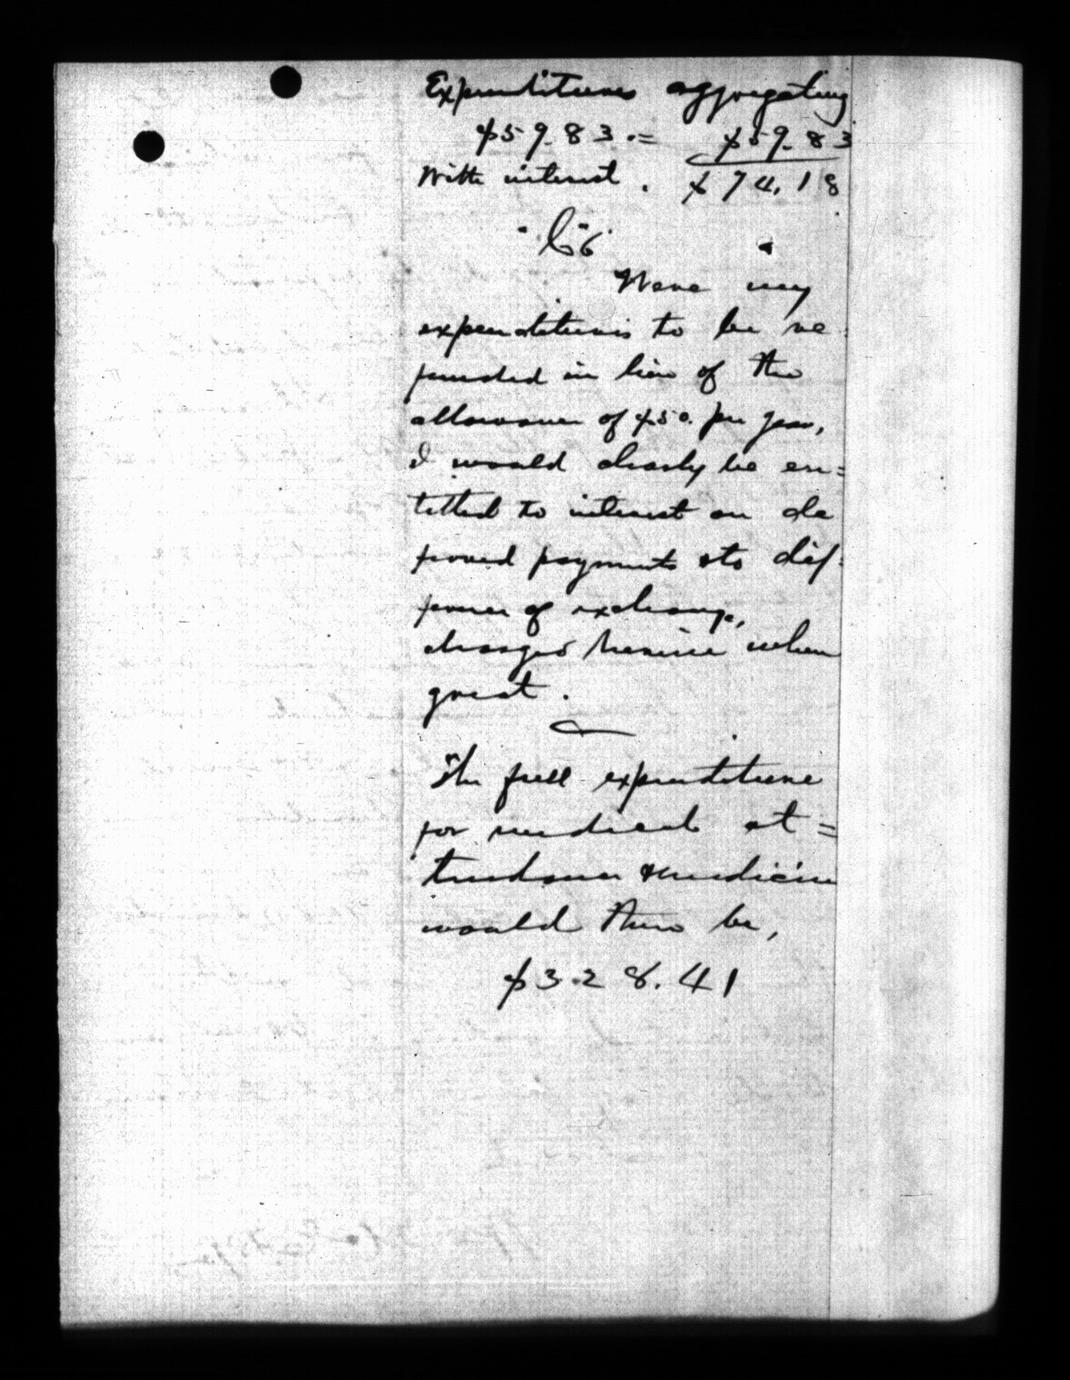 Expenditures aggregating
$59.83.= $59.83
With interest. $74.18
"C" 6
Were my
expenditures to be re
funded in lieu of the
allowance of $50. per year,
I would clearly be en=
titled to interest on de
ferred payments & to dif-
ference of exchange,
charged herein when
great.
The full expenditure
for medical at=
tendance & medicine
would then be,
$328.41